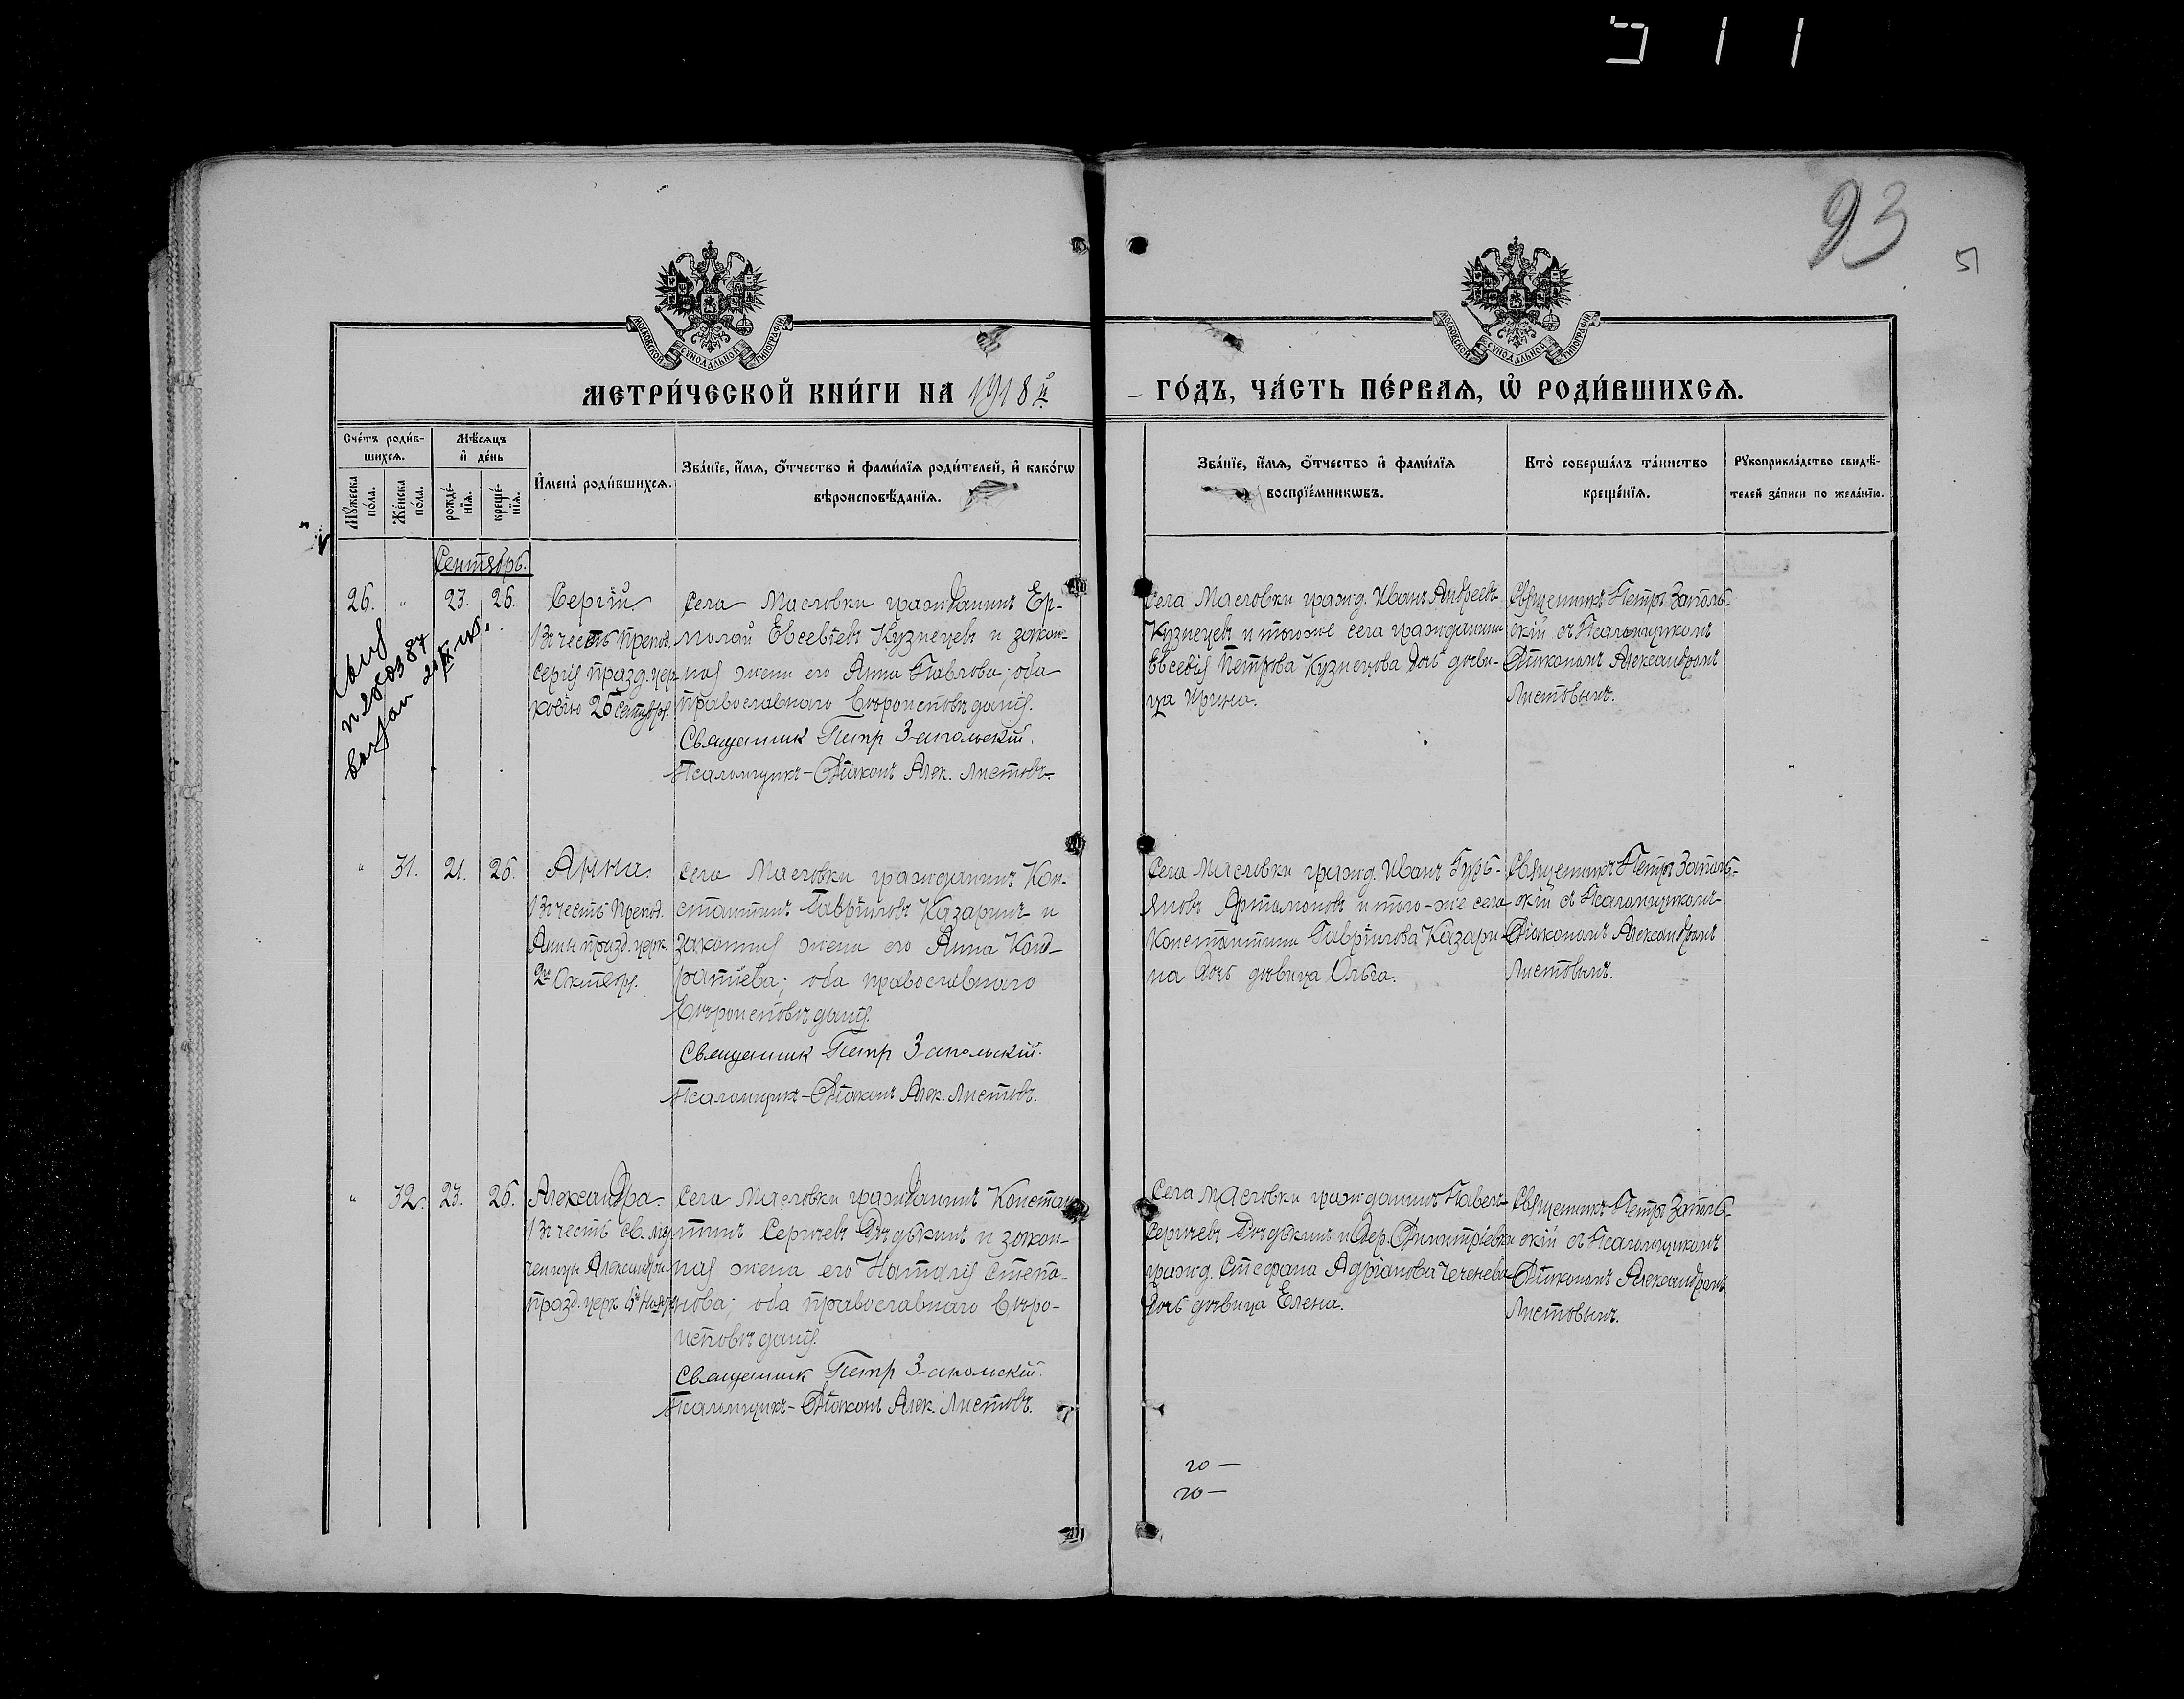 511
93
51
МОСКОВСКОЙ СѴНОДАЛЬНОЙ ТИПОГРАФІИ
МОСКОВСКОЙ СѴНОДАЛЬНОЙ ТИПОГРАФІИ
МЕТРИ́ЧЕСКОЙ КНИ́ГИ НА 1918 й
ГО́ДЪ, ЧА́СТЬ ПЕ́РВАЯ, Ѡ҆ РОДИ́ВШИХСЯ.
Сче́тъ роди́в-
шихся.
Мѣ́сяцъ
и҆ де́нь
Мꙋ́жеска
по́ла.
Же́нска
по́ла.
рожде́-
нїя.
креще́-
нїя.
И҆мена̀ роди́вшихся.
Зва́нїе, и҆́мя, ѻ҆́тчество и҆ фами́лїя роди́телей, и҆ како́гѡ
вѣроисповѣ́данїя.
Зва́нїе, и҆́мя, ѻ҆́тчество и҆ фами́лїя
воспрїе́мникѡвъ.
Кто̀ соверша́лъ та́инство
креще́нїя.
Рꙋкоприкла́дство свидѣ́-
телей за́писи по жела́нїю.
Сентябрь.
26. " 23. 26. Сергій.
Въ честь препод.
Сергія празд. цер-
ковію 25 Сентября.
Села Масловки гражданинъ Ер-
молай Евсевіевъ Кузнецовъ и закон-
ная жена его Анна Павлова; оба
православнаго вѣроисповѣданія.
Священник Петр Запольскій.
Псаломщикъ-Діаконъ Алек. Листовъ.
Села Масловки гражд. Иванъ Андреевъ
Кузнецовъ и того-же села гражданина
Евсевія Петрова Кузнецова дочь дѣви-
ца Ирина.
Священникъ Петръ Заполь-
скій съ Псаломщикомъ
Діакономъ Александромъ
Листовымъ.
" 31. 21. 26. Анна.
Въ честь Препод.
Анны празд. церк.
2го Октября.
Села Масловки гражданинъ Кон-
стантинъ Гавріиловъ Казаринъ и
законная жена его Анна Конд-
ратіева; оба православнаго
вѣроисповѣданія.
Священник Петр Запольскій.
Псаломщикъ-Діаконъ Алек. Листовъ.
Села Масловки гражд. Иванъ Гурь-
яновъ Артамоновъ и того-же села
Константина Гавріилова Казари-
на дочь дѣвица Ольга.
Священникъ Петръ Заполь-
скій съ Псаломщикомъ
Діакономъ Александромъ
Листовымъ.
" 32. 23. 26. Александра.
Въ честь св. му-
ченицы Александры
празд. церк. 6го Ноября
Села Масловки гражданинъ Констан-
тинъ Сергѣевъ Дѣдькинъ и закон-
ная жена его Наталія Степа-
нова; оба православнаго вѣро-
исповѣданія.
Священник Петр Запольскій.
Псаломщикъ-Діаконъ Алек. Листовъ.
Села Масловки гражданинъ Павелъ
Сергѣевъ Дѣдькинъ и дер. Димитріевки
гражд. Стефана Адріанова Чеченева
дочь дѣвица Елена.
Священникъ Петръ Заполь-
скій съ Псаломщикомъ
Діакономъ Александромъ
Листовымъ.
20 —
20 —